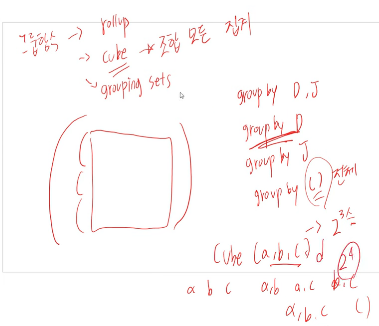 그룹함수 -> rollup
-> cube * 조합 모든 집계
-> grouping sets
group by D, J
group by D
group by J
group by () 전체
-> 2^3승
Cube (a,b,c) d 2^4
a b c a,b a,c b,c
a,b,c ()